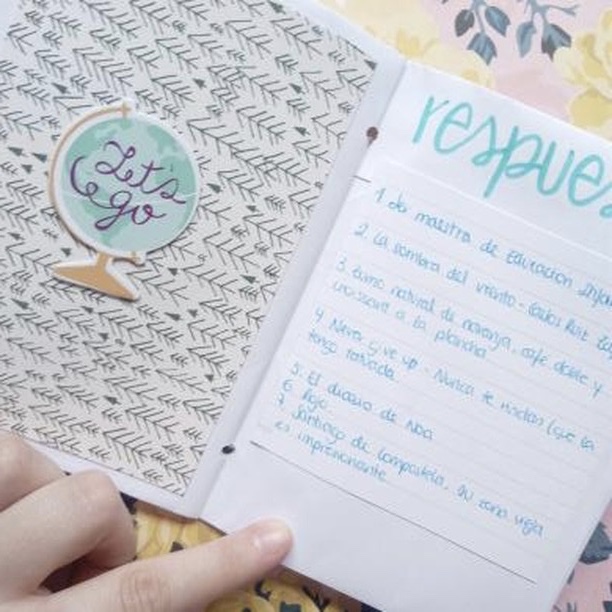 Let's
go
respues
1. de maestra de Educación Infa
2. La sombra del viento - Carlos Ruiz Za
3. Zumo natural de naranja, café doble y
croissant a la plancha
4. Never give up - Nunca te rindas (que la
tengo tatuada.
5. El diario de Noa
6. Rojo.
7. Santiago de Compostela, su zona vieja
es impresionante.